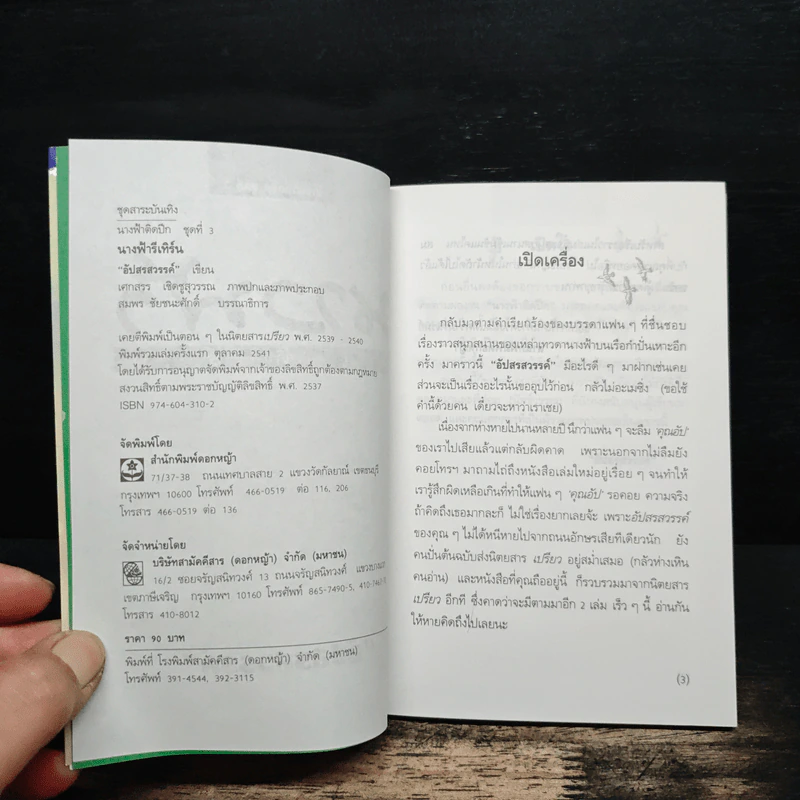 ชุดสาระบันเทิง
นางฟ้าติดปีก ชุดที่ 3
นางฟ้ารีเทิร์น
"อัปสรสวรรค์" เขียน
เศกสรร เชิดชูสุวรรณ ภาพปกและภาพประกอบ
สมพร ชัยชนะศักดิ์ บรรณาธิการ
เคยตีพิมพ์เป็นตอน ๆ ในนิตยสารเปรียว พ.ศ. 2539 - 2540
พิมพ์รวมเล่มครั้งแรก ตุลาคม 2541
โดยได้รับการอนุญาตจัดพิมพ์จากเจ้าของลิขสิทธิ์ถูกต้องตามกฎหมาย
สงวนลิขสิทธิ์ตามพระราชบัญญัติลิขสิทธิ์ พ.ศ. 2537
ISBN 974-604-310-2
จัดพิมพ์โดย
สำนักพิมพ์ดอกหญ้า
71/37-38 ถนนเทศบาลสาย 2 แขวงวัดกัลยาณ์ เขตธนบุรี
กรุงเทพฯ 10600 โทรศัพท์ 466-0519 ต่อ 116, 206
โทรสาร 466-0519 ต่อ 136
จัดจำหน่ายโดย
บริษัทสามัคคีสาร (ดอกหญ้า) จำกัด (มหาชน)
16/2 ซอยจรัญสนิทวงศ์ 13 ถนนจรัญสนิทวงศ์
เขตภาษีเจริญ กรุงเทพฯ 10160 โทรศัพท์ 865-7490-5,
โทรสาร 410-8012
ราคา 90 บาท
พิมพ์ที่ โรงพิมพ์สามัคคีสาร (ดอกหญ้า) จำกัด (มหาชน)
โทรศัพท์ 391-4544, 392-3115
เปิดเครื่อง
กลับมาตามคำเรียกร้องของบรรดาแฟน ๆ ที่ชื่นชอบ
เรื่องราวสนุกสนานของเหล่าเทวดานางฟ้าบนเรือกำปั่นเหาะอีก
ครั้ง มาคราวนี้ "อัปสรสวรรค์" มีอะไรดี ๆ มาฝากเช่นเคย
ส่วนจะเป็นเรื่องอะไรนั้นขออุบไว้ก่อน กลัวไม่อะเมซิ่ง (ขอใช้
คำนี้ด้วยคน เดี๋ยวจะหาว่าเราเชย)
เนื่องจากห่างหายไปนานหลายปี นึกว่าแฟน ๆ จะลืม 'คุณอัป'
ของเราไปเสียแล้วแต่กลับผิดคาด เพราะนอกจากไม่ลืมยัง
คอยโทรฯ มาถามไถ่ถึงหนังสือเล่มใหม่อยู่เรื่อย ๆ จนทำให้
เรารู้สึกผิดเหลือเกินที่ทำให้แฟน ๆ 'คุณอัป' รอคอย ความจริง
ถ้าคิดถึงเธอมากละก็ ไม่ใช่เรื่องยากเลยจ้ะ เพราะอัปสรสวรรค์
ของคุณ ๆ ไม่ได้หนีหายไปจากถนนอักษรเสียทีเดียวนัก ยัง
คนปั่นต้นฉบับส่งนิตยสาร เปรียว อยู่สม่ำเสมอ (กลัวห่างเหิน
คนอ่าน) และหนังสือที่คุณถืออยู่นี้ ก็รวบรวมมาจากนิตยสาร
เปรียว อีกที ซึ่งคาดว่าจะมีตามมาอีก 2 เล่ม เร็ว ๆ นี้ อ่านกัน
ให้หายคิดถึงไปเลยนะ
(3)